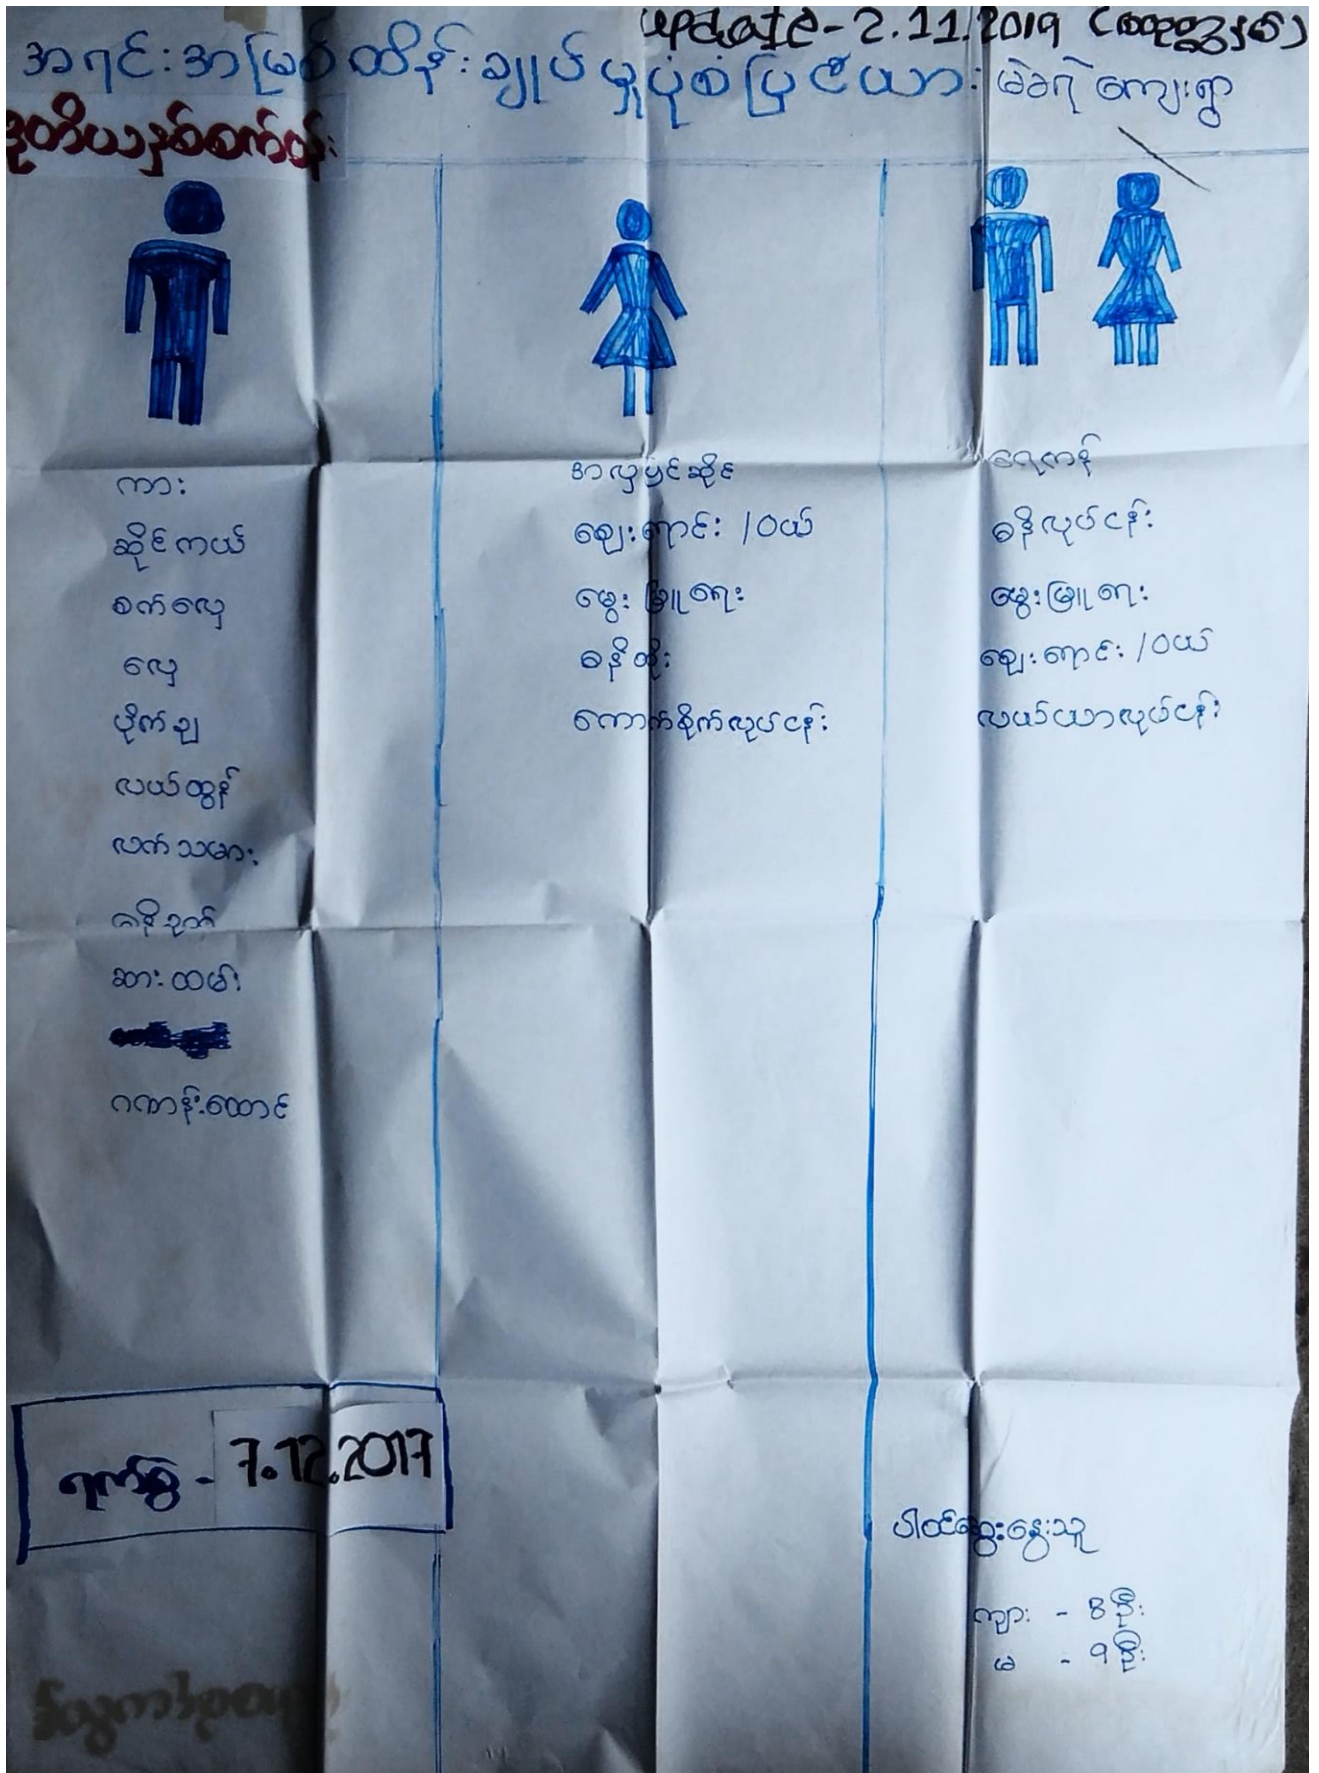 update - 2.11.2019
အရင်းအမြစ်ထိန်းချုပ်မှုပုံစံပြဇယား မဲခရဲ ကျေးရွာ
ဒုတိယနှစ်စက်ဝန်း
ကား
ဆိုင်ကယ်
စက်လှေ
လှေ
ပိုက်ချ
လယ်ထွန်
လက်သမား
ဓနိခုတ်
ဆားထမ်း
ဂဏန်းထောင်
အလှပြင်ဆိုင်
ဈေးရောင်း /ဝယ်
မွေးမြူရေး
ဓနိထိုး
ကောက်စိုက်လုပ်ငန်း
ရေကန်
ဓနိလုပ်ငန်း
မွေးမြူရေး
ဈေးရောင်း /ဝယ်
လယ်ယာလုပ်ငန်း
ရက်စွဲ - 7.12.2017
ပါဝင်ဆွေးနွေးသူ
ကျား - 8 ဦး
မ - 9 ဦး